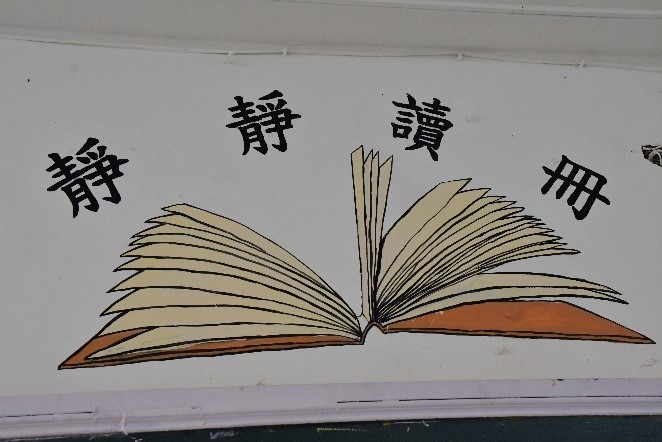 靜靜讀冊